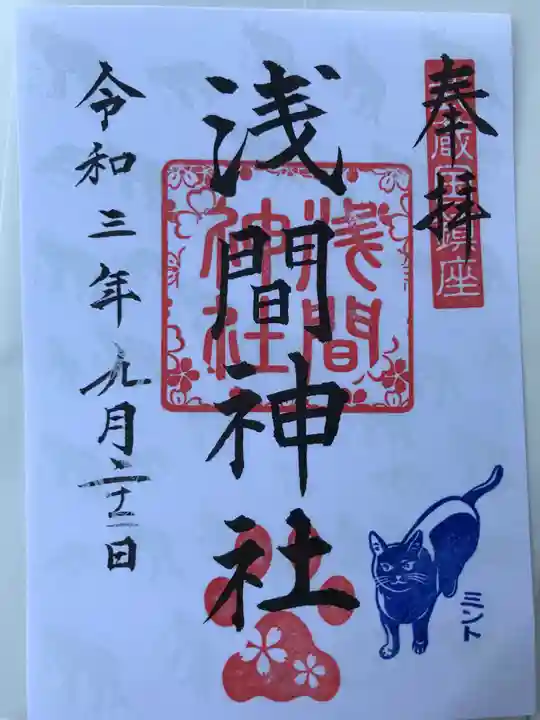 奉拝
武蔵国鎮座
浅間神社
浅間
神社
令和三年九月二十二日
ミント